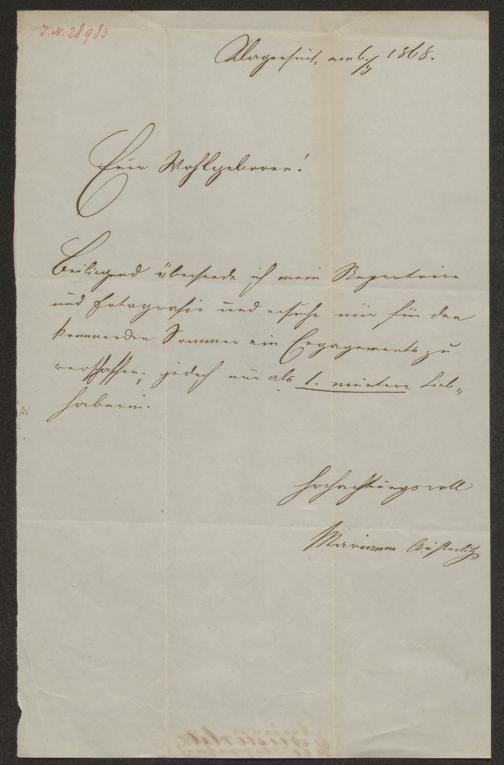 J. N. 28983
Klagenfurt, am 6/3 1868.
Euer Wohlgeboren!
Beiliegend übersende ich mein Repertoire
und Fotografie und ersuche mir für den
kommenden Sommer ein Engagement zu
verschaffen, jedoch nur als 1. muntere Lieb„
haberin.
Hochachtungsvoll
Marianne